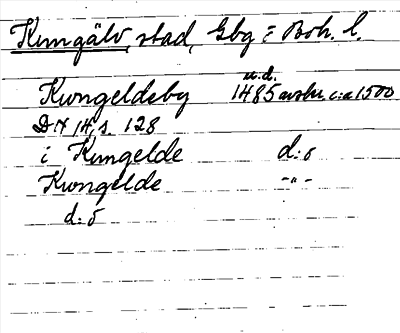 Kungälv, stad, Gbg = Boh. l.
u.d.
Kongeldeby 1485 avskr. c:a 1500
DN 14, s. 128
i Kungelde d:o
Kongelde -"-
d:o